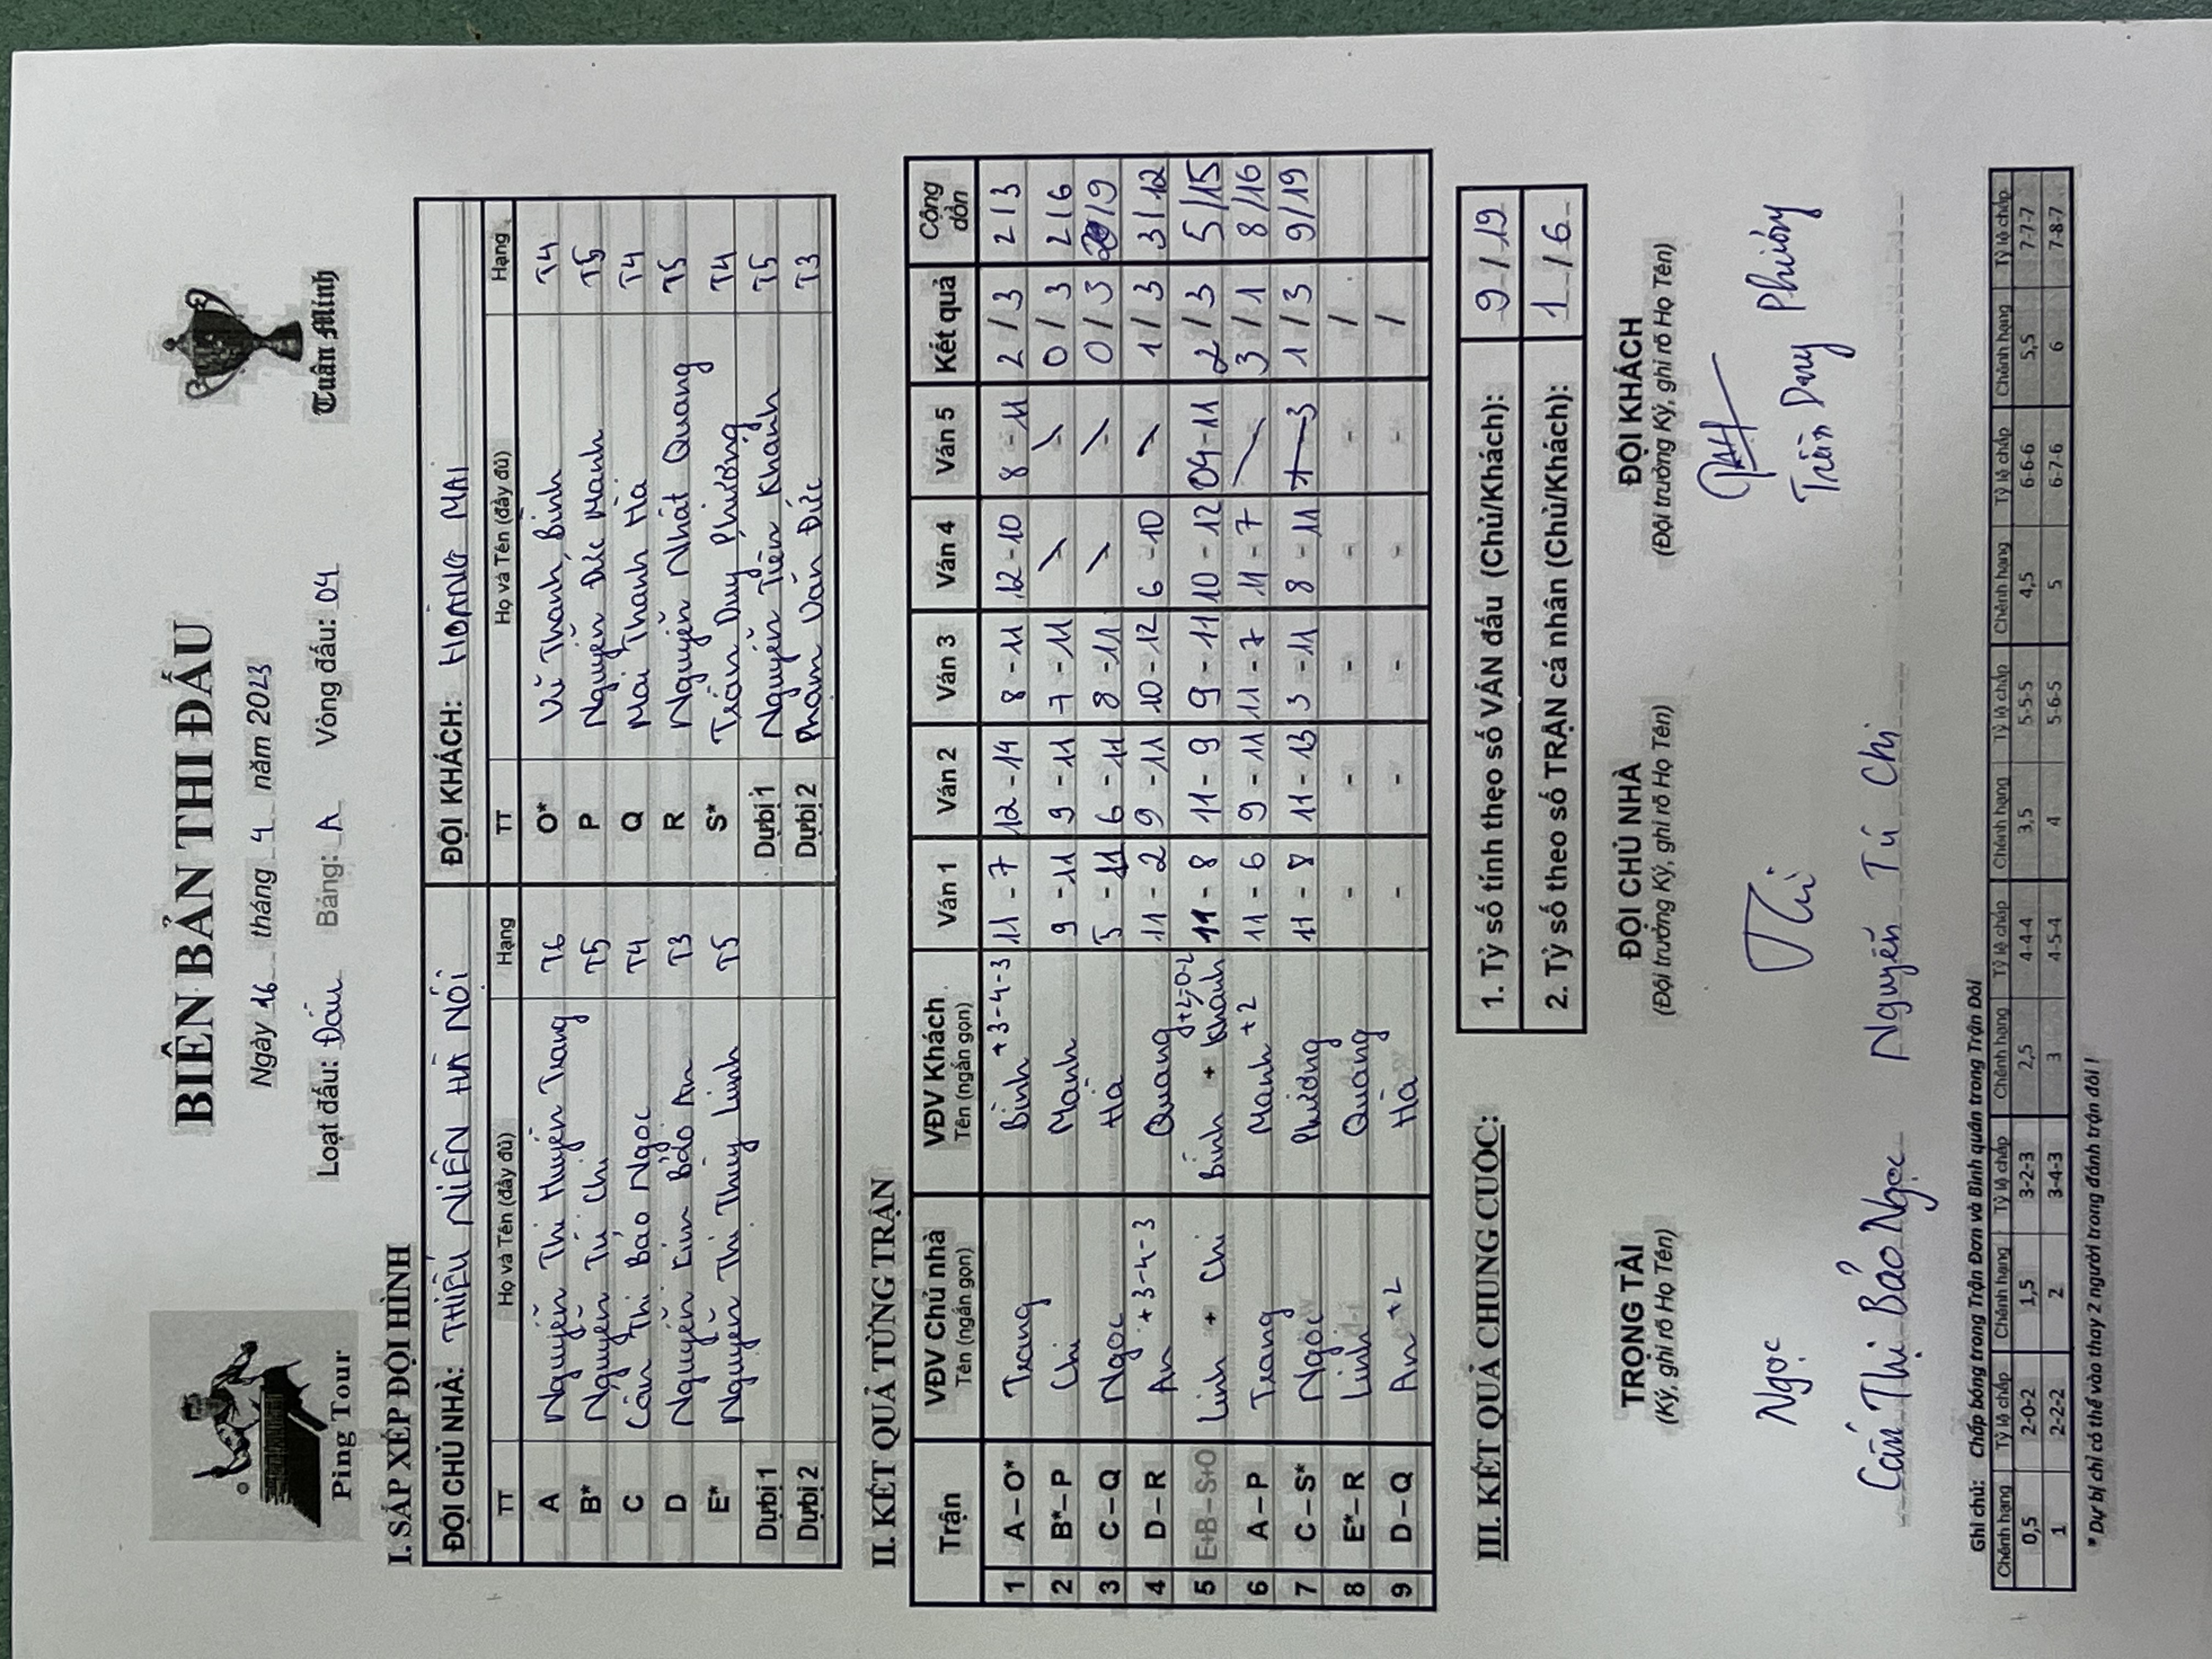 Ping Tour
BIÊN BẢN THI ĐẤU
Tuân Minh
Ngày 16 tháng 4 năm 2023
Loạt đấu: Đấu Bảng: A Vòng đấu: 04
I. SẮP XẾP ĐỘI HÌNH
ĐỘI CHỦ NHÀ: THIẾU NIÊN HÀ NỘI ĐỘI KHÁCH: HOÀNG MAI
TT Họ và Tên (đầy đủ) Hạng TT Họ và Tên (đầy đủ) Hạng
A Nguyễn Thị Huyền Trang T6 O* Vũ Thanh Bình T4
B* Nguyễn Tú Chi T5 P Nguyễn Đức Mạnh T5
C Cấn Thị Bảo Ngọc T4 Q Mai Thanh Hà T4
D Nguyễn Kim Bảo An T3 R Nguyễn Nhật Quang T5
E* Nguyễn Thị Thùy Linh T5 S* Trần Duy Phương T4
Dự bị 1 Dự bị 1 Nguyễn Tiến Khánh T5
Dự bị 2 Dự bị 2 Phạm Văn Đức T3
II. KẾT QUẢ TỪNG TRẬN
Trận VĐV Chủ nhà Tên (ngắn gọn) VĐV Khách Tên (ngắn gọn) Ván 1 Ván 2 Ván 3 Ván 4 Ván 5 Kết quả Cộng dồn
1 A – O* Trang Bình +3-4-3 11 - 7 12 - 14 8 - 11 12 - 10 8 - 11 2 / 3 2 / 3
2 B* – P Chi Mạnh 9 - 11 9 - 11 7 - 11 0 / 3 2 / 6
3 C – Q Ngọc Hà 5 - 11 6 - 11 8 - 11 0 / 3 / 9
4 D – R An +3-4-3 Quang 11 - 2 9 - 11 10 - 12 6 - 10 1 / 3 3 / 12
5 E+B – S+O Linh + Chi Bình + Khánh +2-0-2 11 - 8 11 - 9 9 - 11 10 - 12 04 - 11 2 / 3 5 / 15
6 A – P Trang Mạnh +2 11 - 6 9 - 11 11 - 7 11 - 7 3 / 1 8 / 16
7 C – S* Ngọc Phương 11 - 8 11 - 13 3 - 11 8 - 11 1 / 3 9 / 19
8 E* – R Linh Quang - - - - - /
9 D – Q An +2 Hà - - - - - /
III. KẾT QUẢ CHUNG CUỘC:
1. Tỷ số tính theo số VÁN đấu (Chủ/Khách): 9 / 19
2. Tỷ số theo số TRẬN cá nhân (Chủ/Khách): 1 / 6
TRỌNG TÀI ĐỘI CHỦ NHÀ ĐỘI KHÁCH
(Ký, ghi rõ Họ Tên) (Đội trưởng Ký, ghi rõ Họ Tên) (Đội trưởng Ký, ghi rõ Họ Tên)
Ngọc Chi
Cấn Thị Bảo Ngọc Nguyễn Tú Chi Trần Duy Phương
Ghi chú: Chấp bóng trong Trận Đơn và Bình quân trong Trận Đôi
Chênh hạng Tỷ lệ chấp Chênh hạng Tỷ lệ chấp Chênh hạng Tỷ lệ chấp Chênh hạng Tỷ lệ chấp Chênh hạng Tỷ lệ chấp Chênh hạng Tỷ lệ chấp Chênh hạng Tỷ lệ chấp
0,5 2-0-2 1,5 3-2-3 2,5 4-4-4 3,5 5-5-5 4,5 6-6-6 5,5 7-7-7
1 2-2-2 2 3-4-3 3 4-5-4 4 5-6-5 5 6-7-6 6 7-8-7
* Dự bị chỉ có thể vào thay 2 người trong đánh trận đôi !